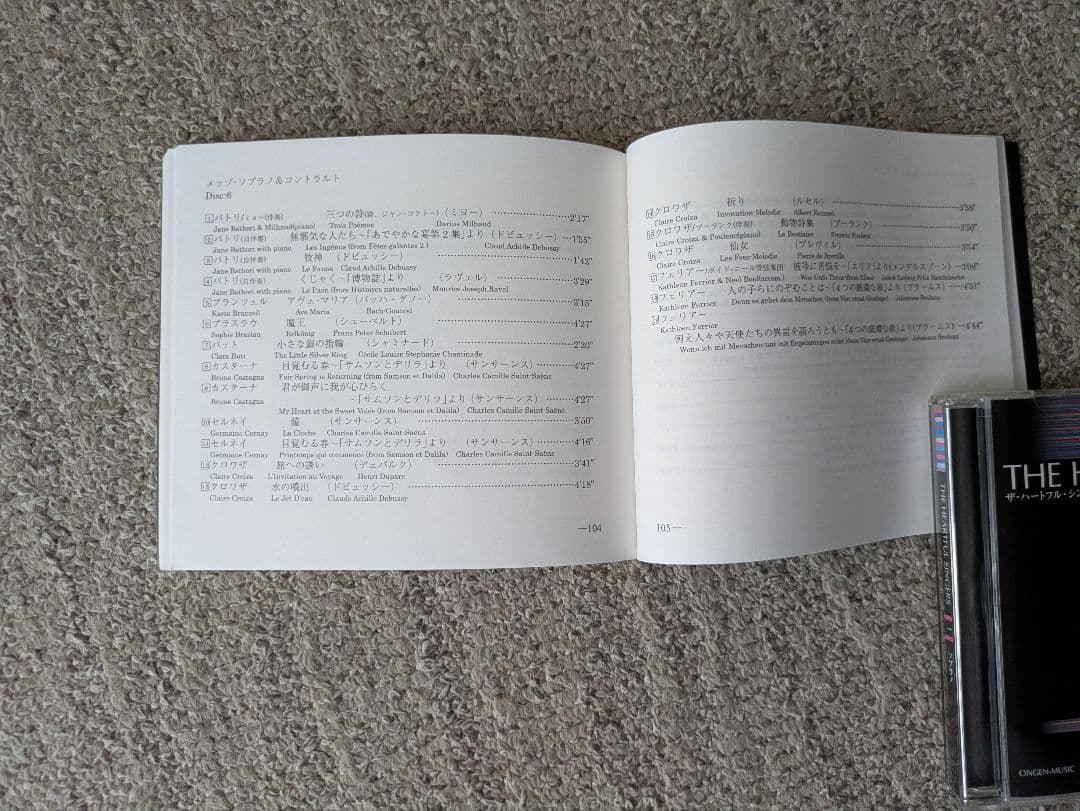 メッゾ・ソプラノ&コントラルト
Disc-6
1 バトリ/ミヨー(伴奏) 三つの詩(詩、ジャン・コクトー)(ミヨー) 2'17"
Jane Bathori & Milhaud(piano) Trois Poèmes Darius Milhaud
2 バトリ(自伴奏) 無邪気な人たち~「あでやかな宴第2集」より(ドビュッシー) 1'55"
Jane Bathori with piano Les Ingénus (from Fêtes galantes 2) Claud Achille Debussy
3 バトリ(自伴奏) 牧神 (ドビュッシー) 1'42"
Jane Bathori with piano Le Faune Claud Achille Debussy
4 バトリ(自伴奏) くじゃく~「博物誌」より (ラヴェル) 3'29"
Jane Bathori with piano Le Paon (from Histoires naturelles) Maurice-Joseph Ravel
5 ブランツェル アヴェ・マリア (バッハ・グノー) 3'15"
Karin Branzell Ave Maria Bach-Gounod
6 ブラスラウ 魔王 (シューベルト) 4'27"
Sophie Braslau Erlkönig Franz Peter Schubert
7 バット 小さな銀の指輪 (シャミナード) 2'20"
Clara Butt The Little Silver Ring Cécile Louise Stephanie Chaminade
8 カスターナ 目覚むる春~「サムソンとデリラ」より (サンサーンス) 4'27"
Bruna Castagna Fair Spring is Returning (from Samson et Dalila) Charles Camille Saint-Saëns
9 カスターナ 君が御声に我が心ひらく
Bruna Castagna ~「サムソンとデリラ」より (サンサーンス) 4'27"
My Heart at the Sweet Voice (from Samson et Dalila) Charles Camille Saint-Saëns
10 セルネイ 鐘 (サンサーンス) 3'50"
Germaine Cernay La Cloche Charles Camille Saint-Saëns
11 セルネイ 目覚むる春~「サムソンとデリラ」より (サンサーンス) 4'16"
Germaine Cernay Printemps qui commence (from Samson et Dalila) Charles Camille Saint-Saëns
12 クロワザ 旅への誘い (デュパルク) 3'41"
Claire Croiza L'Invitation au Voyage Henri Duparc
13 クロワザ 水の噴出 (ドビュッシー) 4'18"
Claire Croiza Le Jet D'eau Claude Achille Debussy
—104
14 クロワザ 祈り (ルセル) 3'58"
Claire Croiza Invocation-Melodie Albert Roussel
15 クロワザ/プーランク(伴奏) 動物詩集 (プーランク) 3'50"
Claire Croiza & Poulenc(piano) Le Bestiaire Francis Poulenc
16 クロワザ 仙女 (ブレヴィル) 3'54"
Claire Croiza Les Feer-Melodie Pierre de Breville
17 フェリアー/ボイド・ニール管弦楽団 彼等に苦悩を~「エリア」より(メンデルスゾーン) 3'09"
Kathleen Ferrier & Neel Boid(accom.) Woe Unto Them (from Elias) Jakob Ludwig Felix Mendelssohn
18 フェリアー 人の子らにのぞむことは~「4つの厳粛な歌」より(ブラームス) 4'51"
Kathleen Ferrier Denn es gehet dem Menschen (from Vier ernst Gesänge) Johannes Brahms
19 フェリアー
Kathleen Ferrier
例え人々や天使たちの異言を語ろうとも~「4つの厳粛な歌」より(ブラームス) 4'44"
Wenn ich mit Menschen und mit Engelszungen redet (from Vier ernst Gesänge) Johannes Brahms
105—
THE HEARTFUL SINGERS
ソプラノ
THE H
ザ・ハートフル・シン
ONGEN-MUSIC